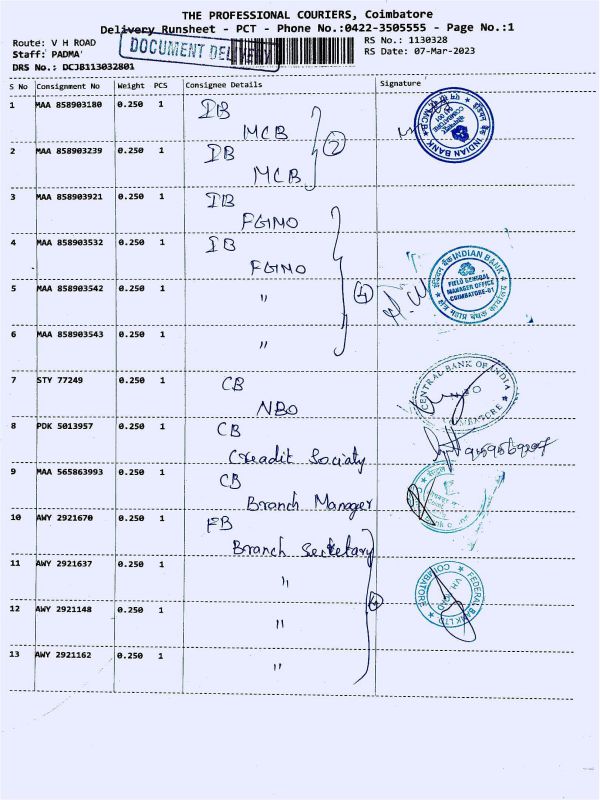 THE PROFESSIONAL COURIERS, Coimbatore
Delivery Runsheet - PCT - Phone No.:0422-3505555 - Page No.:1
Route: V H ROAD
Staff: PADMA
DRS No.: DCJB113032801
DOCUMENT DEL
RS No.: 1130328
RS Date: 07-Mar-2023
S No Consignment No Weight PCS Consignee Details Signature
1 MAA 858903180 0.250 1 IB
MCB
2 MAA 858903239 0.250 1 IB
MCB
2
INDIAN BANK
MCB
COIMBATORE
3 MAA 858903921 0.250 1 IB
FGMO
4 MAA 858903532 0.250 1 IB
FGMO
5 MAA 858903542 0.250 1 "
4
INDIAN BANK
FIELD GENERAL
MANAGER OFFICE
COIMBATORE-01
6 MAA 858903543 0.250 1 "
7 STY 77249 0.250 1 CB
NBO
CENTRAL BANK OF INDIA
8 PDK 5013957 0.250 1 CB
Creadit Sociaty
9 MAA 565863993 0.250 1 CB
Branch Manager
10 AWY 2921670 0.250 1 FB
Branch Secketary
11 AWY 2921637 0.250 1 "
FEDERAL BANK LTD.
VH ROAD
COIMBATORE
12 AWY 2921148 0.250 1 "
4
13 AWY 2921162 0.250 1 "